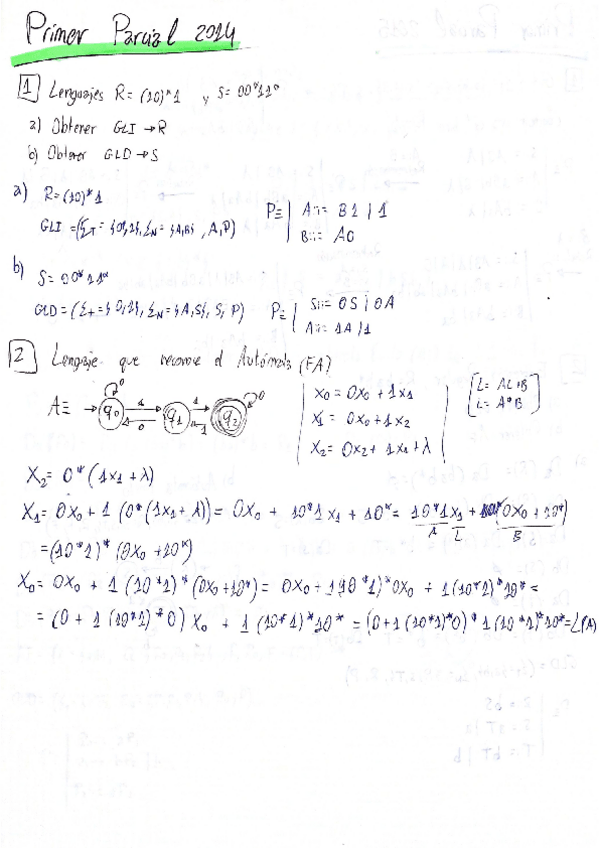 Primer Parcial 2014
1 Lenguajes R=(10)*1 y S=00*11*
a) Obtener GLI →R
b) Obtener GLD →S
a) R=(10)*1
GLI =(Σ_T={0,1}, Σ_N={A,B}, A, P) P≡ | A::= B1 | 1
B::= A0
b) S=00*11*
GLD=(Σ_T={0,1}, Σ_N={A,S}, S, P) P≡ | S::= 0S | 0A
A::= 1A | 1
2 Lenguaje que reconoce el Autómata (FA)
A≡ → q0 q1 q2 0 1 0 1 1 0
X0 = 0X0 + 1X1
X1 = 0X0 + 1X2
X2 = 0X2 + 1X1 + λ
[L= AL+B
L= A*B]
X2= 0* (1X1 + λ)
X1= 0X0 + 1 (0*(1X1 + λ)) = 0X0 + 10*1X1 + 10* = 10*1X1 + (0X0 + 10*)
A L B
=(10*1)* (0X0 + 10*)
X0= 0X0 + 1 (10*1)* (0X0 + 10*) = 0X0 + 1(10*1)*0X0 + 1(10*1)*10* =
= (0 + 1 (10*1)*0) X0 + 1 (10*1)*10* = (0+1(10*1)*0)*1(10*1)*10*=L(FA)